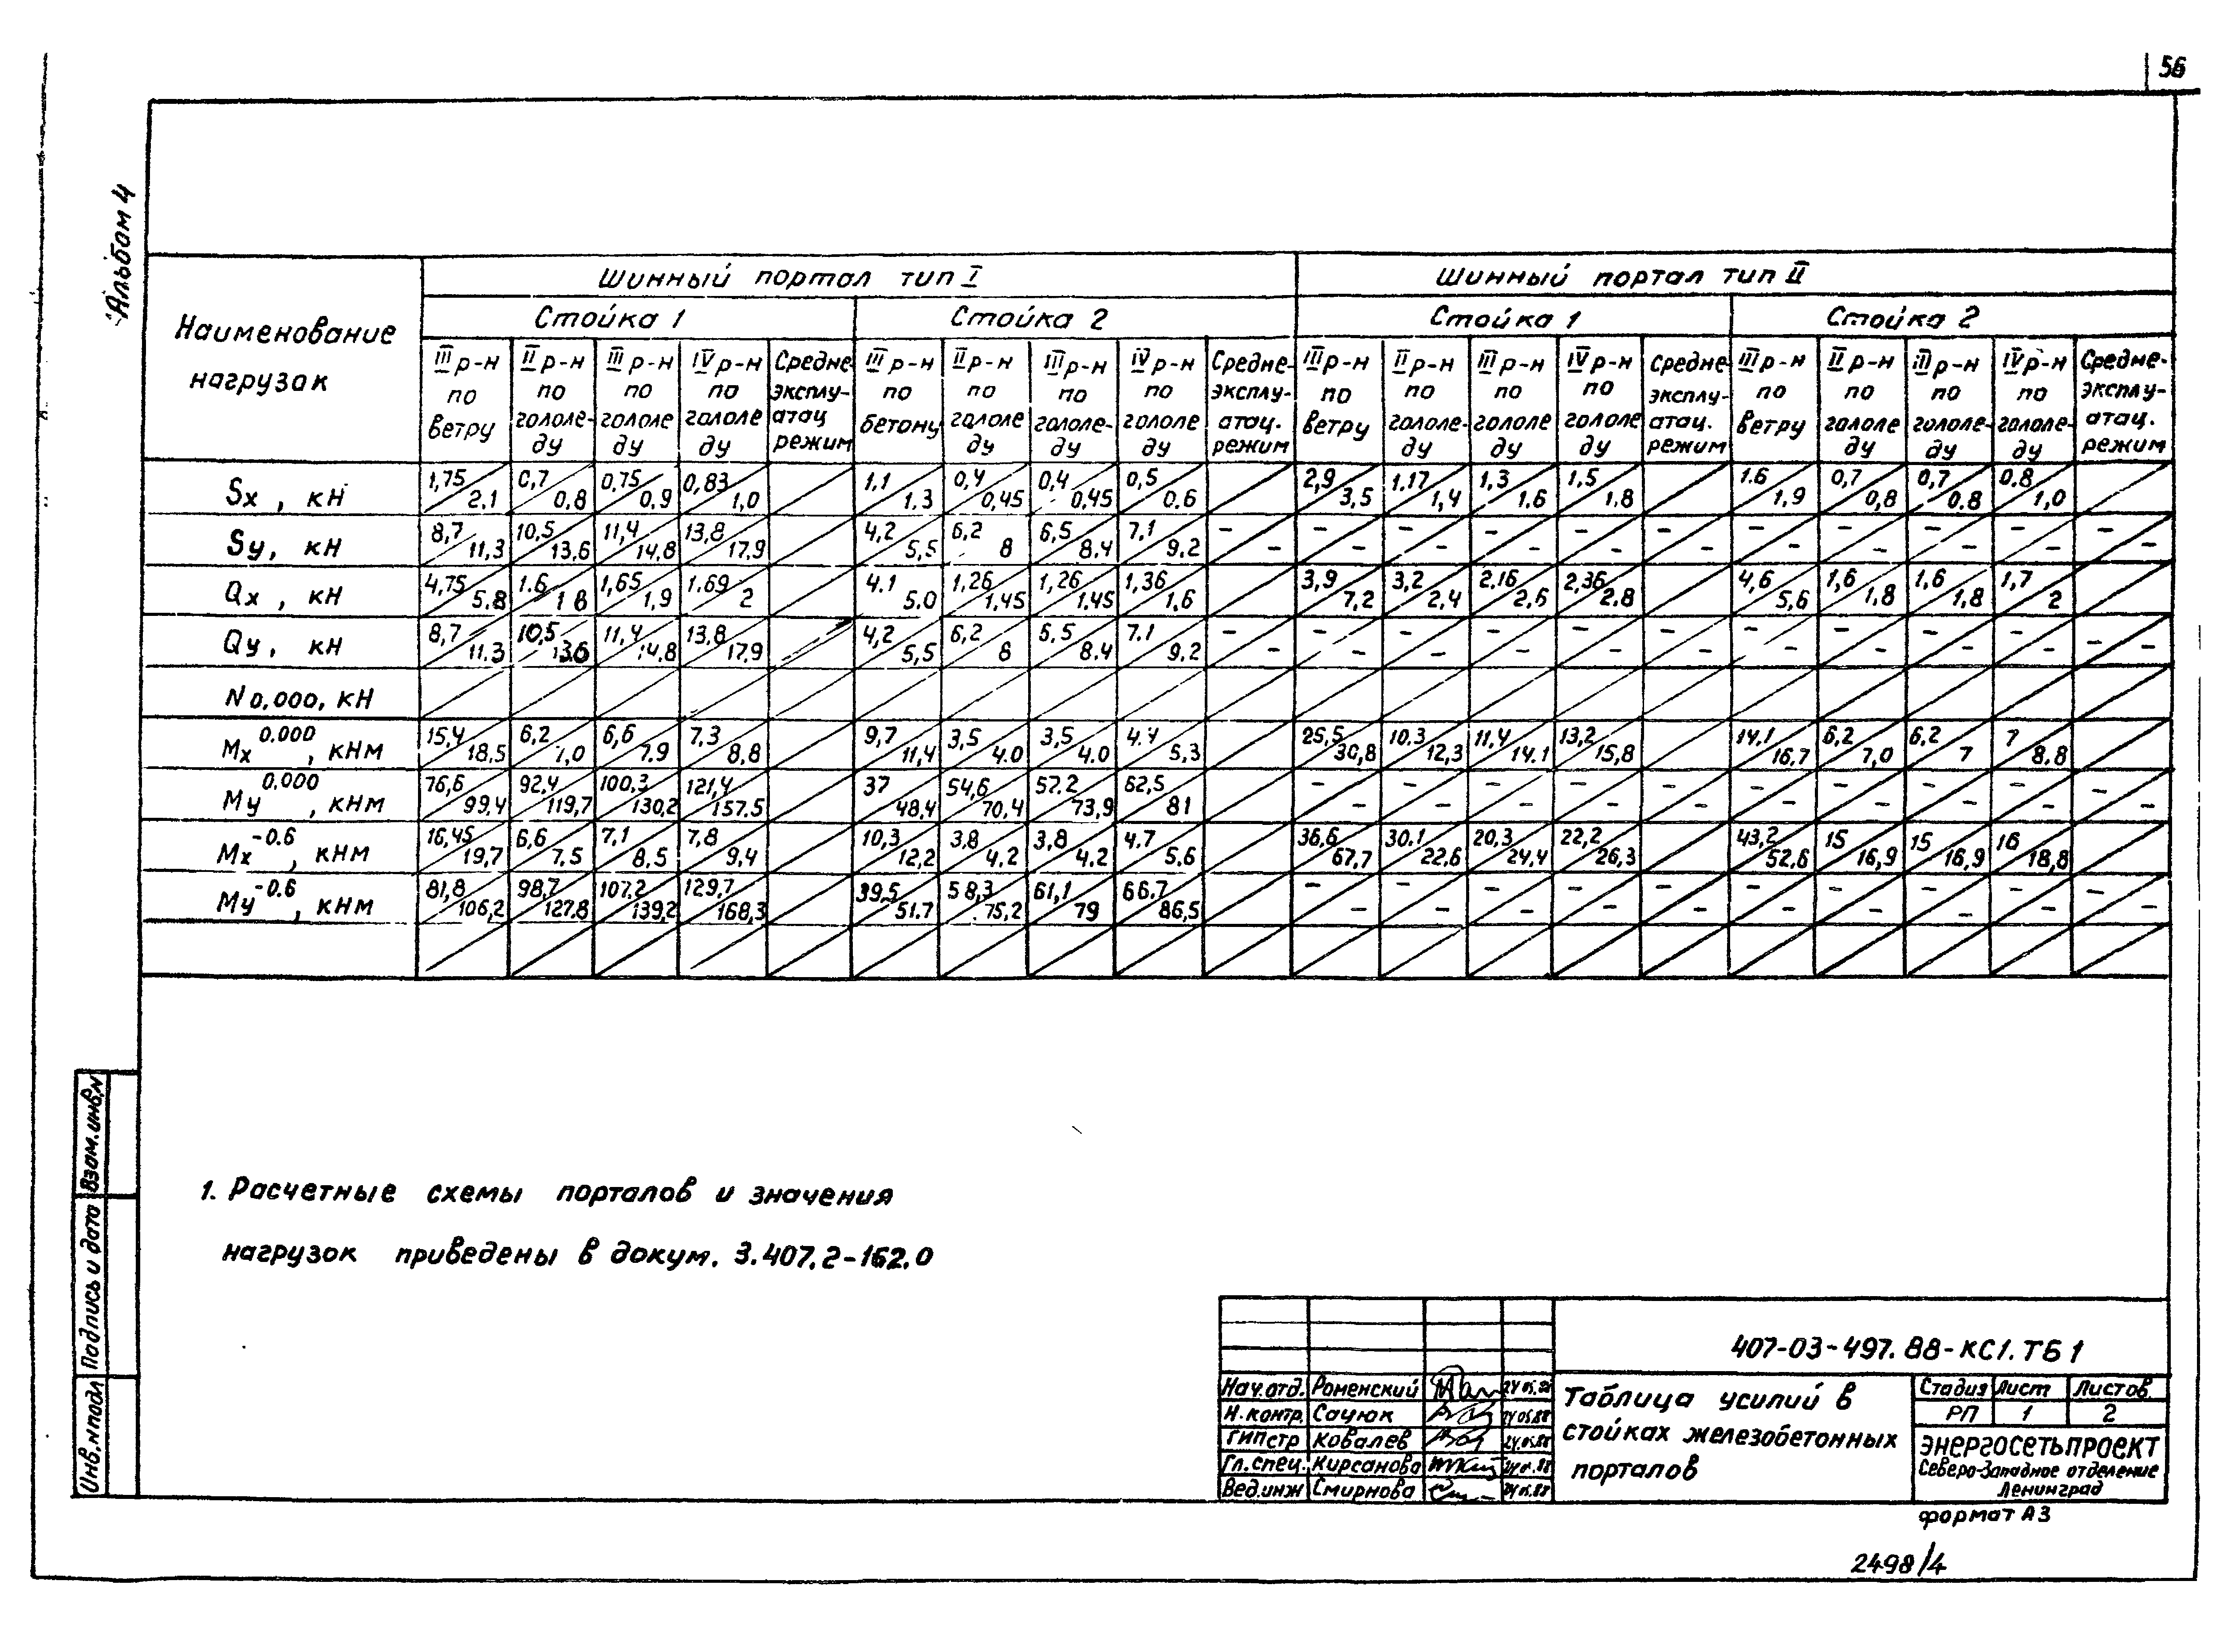 56
Альбом 4
Наименование нагрузок
Шинный портал тип I
Шинный портал тип II
Стойка 1
Стойка 2
Стойка 1
Стойка 2
III р-н по ветру
II р-н по гололе-ду
III р-н по гололе ду
IV р-н по гололе ду
Средне эксплу-атац режим
III р-н по бетону
II р-н по гололе ду
III р-н по гололе-ду
IV р-н по гололе ду
Средне-эксплу-атац. режим
III р-н по ветру
II р-н по гололе-ду
III р-н по гололе ду
IV р-н по гололе ду
Средне эксплу-атац. режим
III р-н по ветру
II р-н по гололе ду
III р-н по гололе-ду
IV р-н по гололе-ду
Средне-эксплу-атац. режим
Sx, кН 1,75/2.1 0,7/0.8 0,75/0.9 0,83/1,0 / 1.1/1.3 0,4/0,45 0,4/0,45 0,5/0.6 / 2,9/3,5 1.17/1,4 1,3/1.6 1,5/1.8 / 1.6/1,9 0,7/0,8 0,7/0.8 0.8/1,0 /
Sy, кН 8,7/11,3 10,5/13,6 11,4/14,8 13,8/17,9 / 4,2/5,5 6,2/8 6,5/8.4 7,1/9,2 -/- -/- -/- -/- -/- -/- -/- -/- -/- -/- -/-
Qx, кН 4,75/5.8 1.6/1 8 1,65/1,9 1.69/2 / 4.1/5.0 1,26/1,45 1,26/1.45 1,36/1,6 / 3,9/7,2 3,2/2,4 2.16/2,6 2,36/2,8 / 4,6/5,6 1,6/1,8 1,6/1,8 1,7/2 /
Qy, кН 8,7/11.3 10,5/13.6 11,4/14.8 13,8/17,9 / 4,2/5,5 6,2/8 6,5/8.4 7.1/9,2 -/- -/- -/- -/- -/- -/- -/- -/- -/- -/- -/-
N 0,000, кН
Mx 0.000, кНм 15,4/18,5 6,2/7,0 6,6/7.9 7,3/8,8 / 9,7/11,4 3,5/4.0 3,5/4.0 4.4/5,3 / 25,5/30,8 10.3/12,3 11,4/14.1 13,2/15,8 / 14.1/16,7 6,2/7,0 6,2/7 7/8.8 /
My 0.000, кНм 76,6/99,4 92,4/119,7 100,3/130,2 121,4/157.5 / 37/48,4 54,6/70,4 57.2/73,9 62,5/81 / -/- -/- -/- -/- -/- -/- -/- -/- -/- -/-
Mx -0.6, кНм 16,45/19,7 6,6/7.5 7,1/8,5 7,8/9,4 / 10,3/12,2 3,8/4.2 3,8/4.2 4.7/5.6 / 36,6/67,7 30.1/22,6 20,3/24,4 22,2/26,3 / 43,2/52,6 15/16,9 15/16,9 16/18,8 /
My -0.6, кНм 81,8/106,2 98,7/127,8 107,2/139,2 129,7/168,3 / 39,5/51.7 58,3/75,2 61,1/79 66.7/86,5 / -/- -/- -/- -/- -/- -/- -/- -/- -/- -/-
1. Расчетные схемы порталов и значения
нагрузок приведены в докум. 3.407.2-162.0
Взам.инв.N
Подпись и дата
Инв.N подл
407-03-497.88-КС1.ТБ1
Нач.отд. Роменский 24.05.88
Н.контр. Сацюк 24.05.88
ГИП стр Ковалев 24.05.88
Гл.спец. Кирсанова
Вед.инж Смирнова
Таблица усилий в
стойках железобетонных
порталов
Стадия Лист Листов
РП 1 2
ЭНЕРГОСЕТЬПРОЕКТ
Северо-Западное отделение
Ленинград
формат А3
2498/4